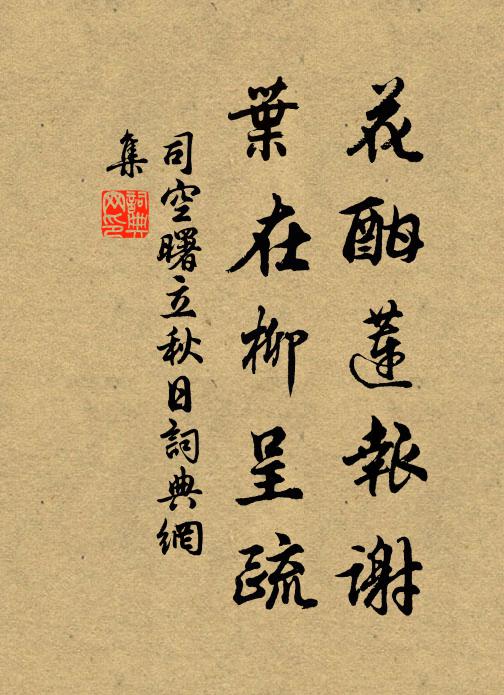 花酣蓮報謝
葉在柳呈疏
司空曙立秋日詞典網
集
詞典
网印